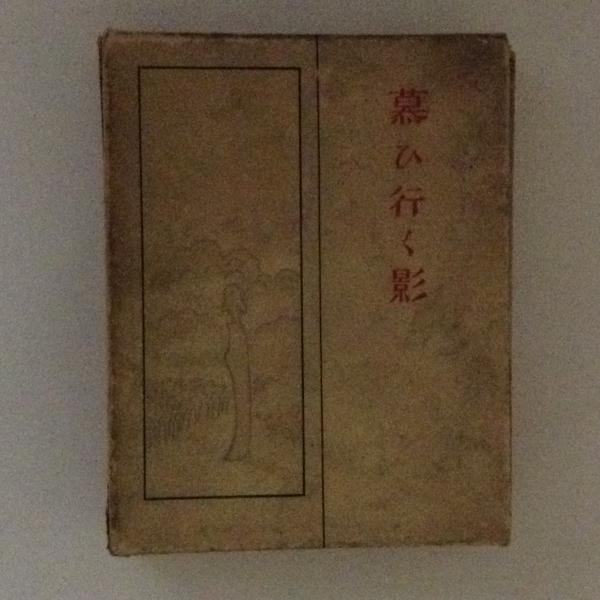 慕ひ行く影